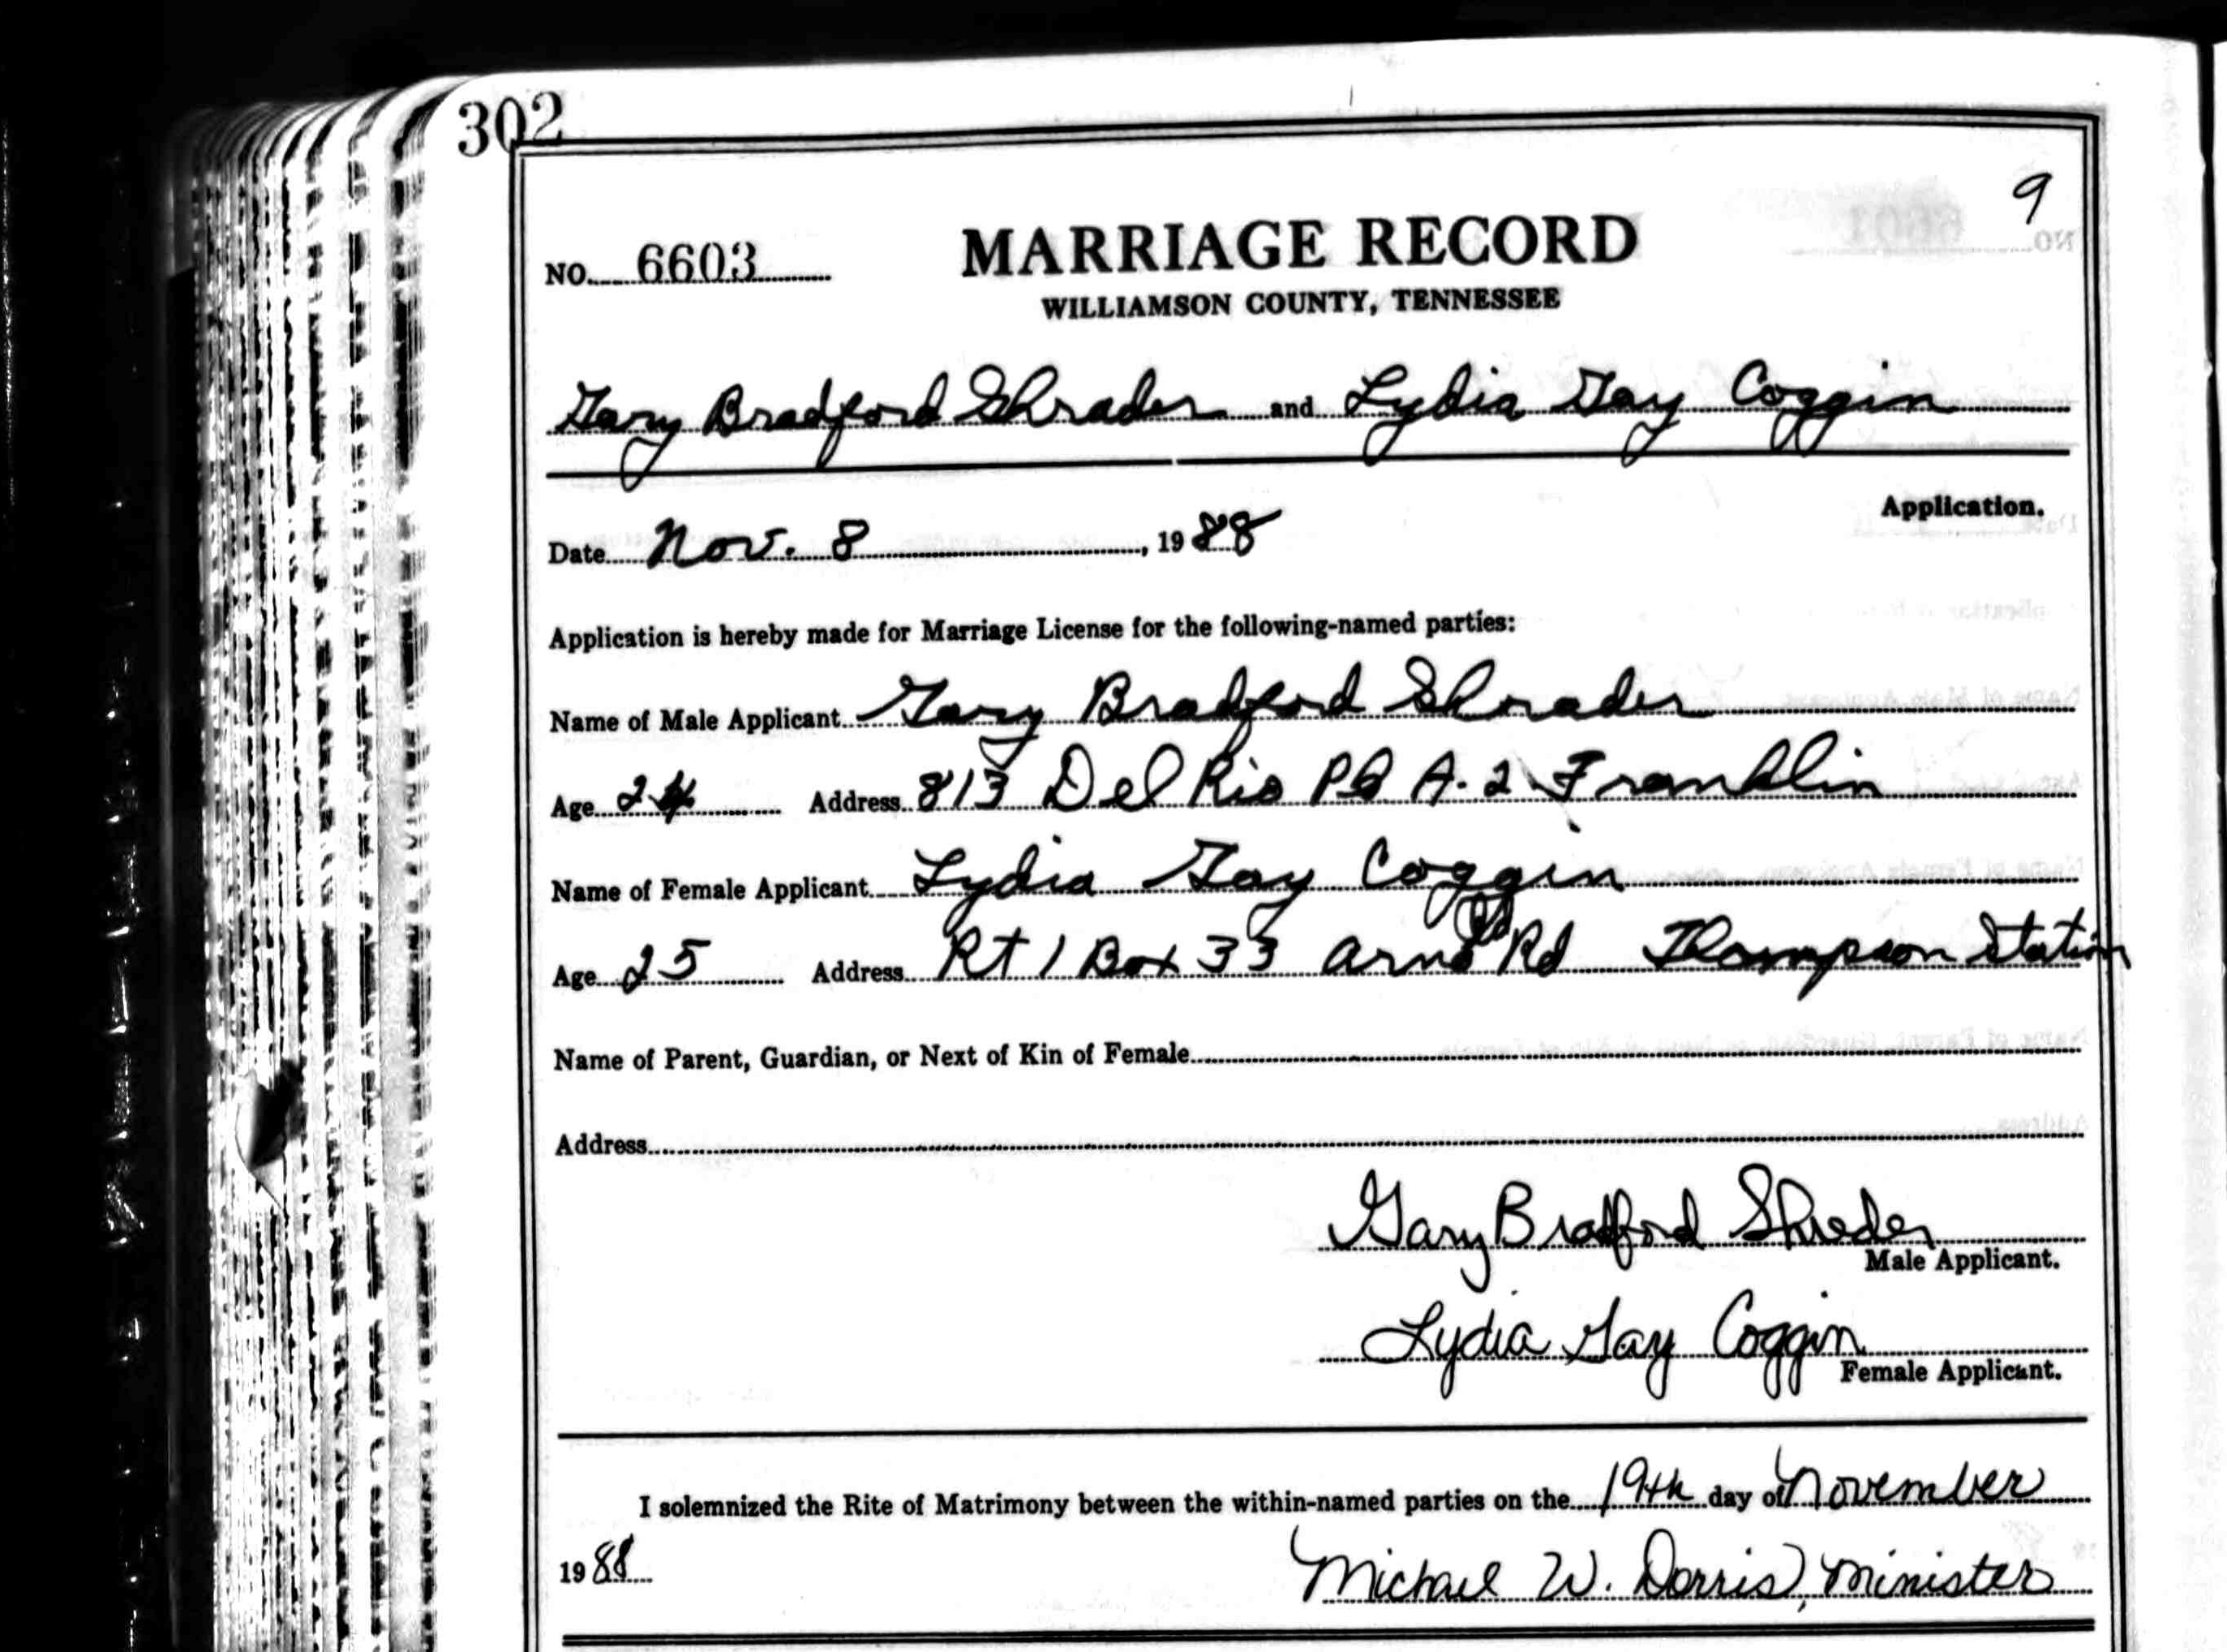 302
9
NO. 6603 MARRIAGE RECORD
WILLIAMSON COUNTY, TENNESSEE
Gary Bradford Shrader and Lydia Gay Coggin
Application.
Date Nov. 8, 1988
Application is hereby made for Marriage License for the following-named parties:
Name of Male Applicant Gary Bradford Shrader
Age 24 Address 813 Del Rio Pk A-2 Franklin
Name of Female Applicant Lydia Gay Coggin
Age 25 Address Rt 1 Box 33 Arno Rd Thompson Station
Name of Parent, Guardian, or Next of Kin of Female
Address
Gary Bradford Shrader
Male Applicant.
Lydia Gay Coggin
Female Applicant.
I solemnized the Rite of Matrimony between the within-named parties on the 19th day of November
1988 Michael W. Dorris, Minister